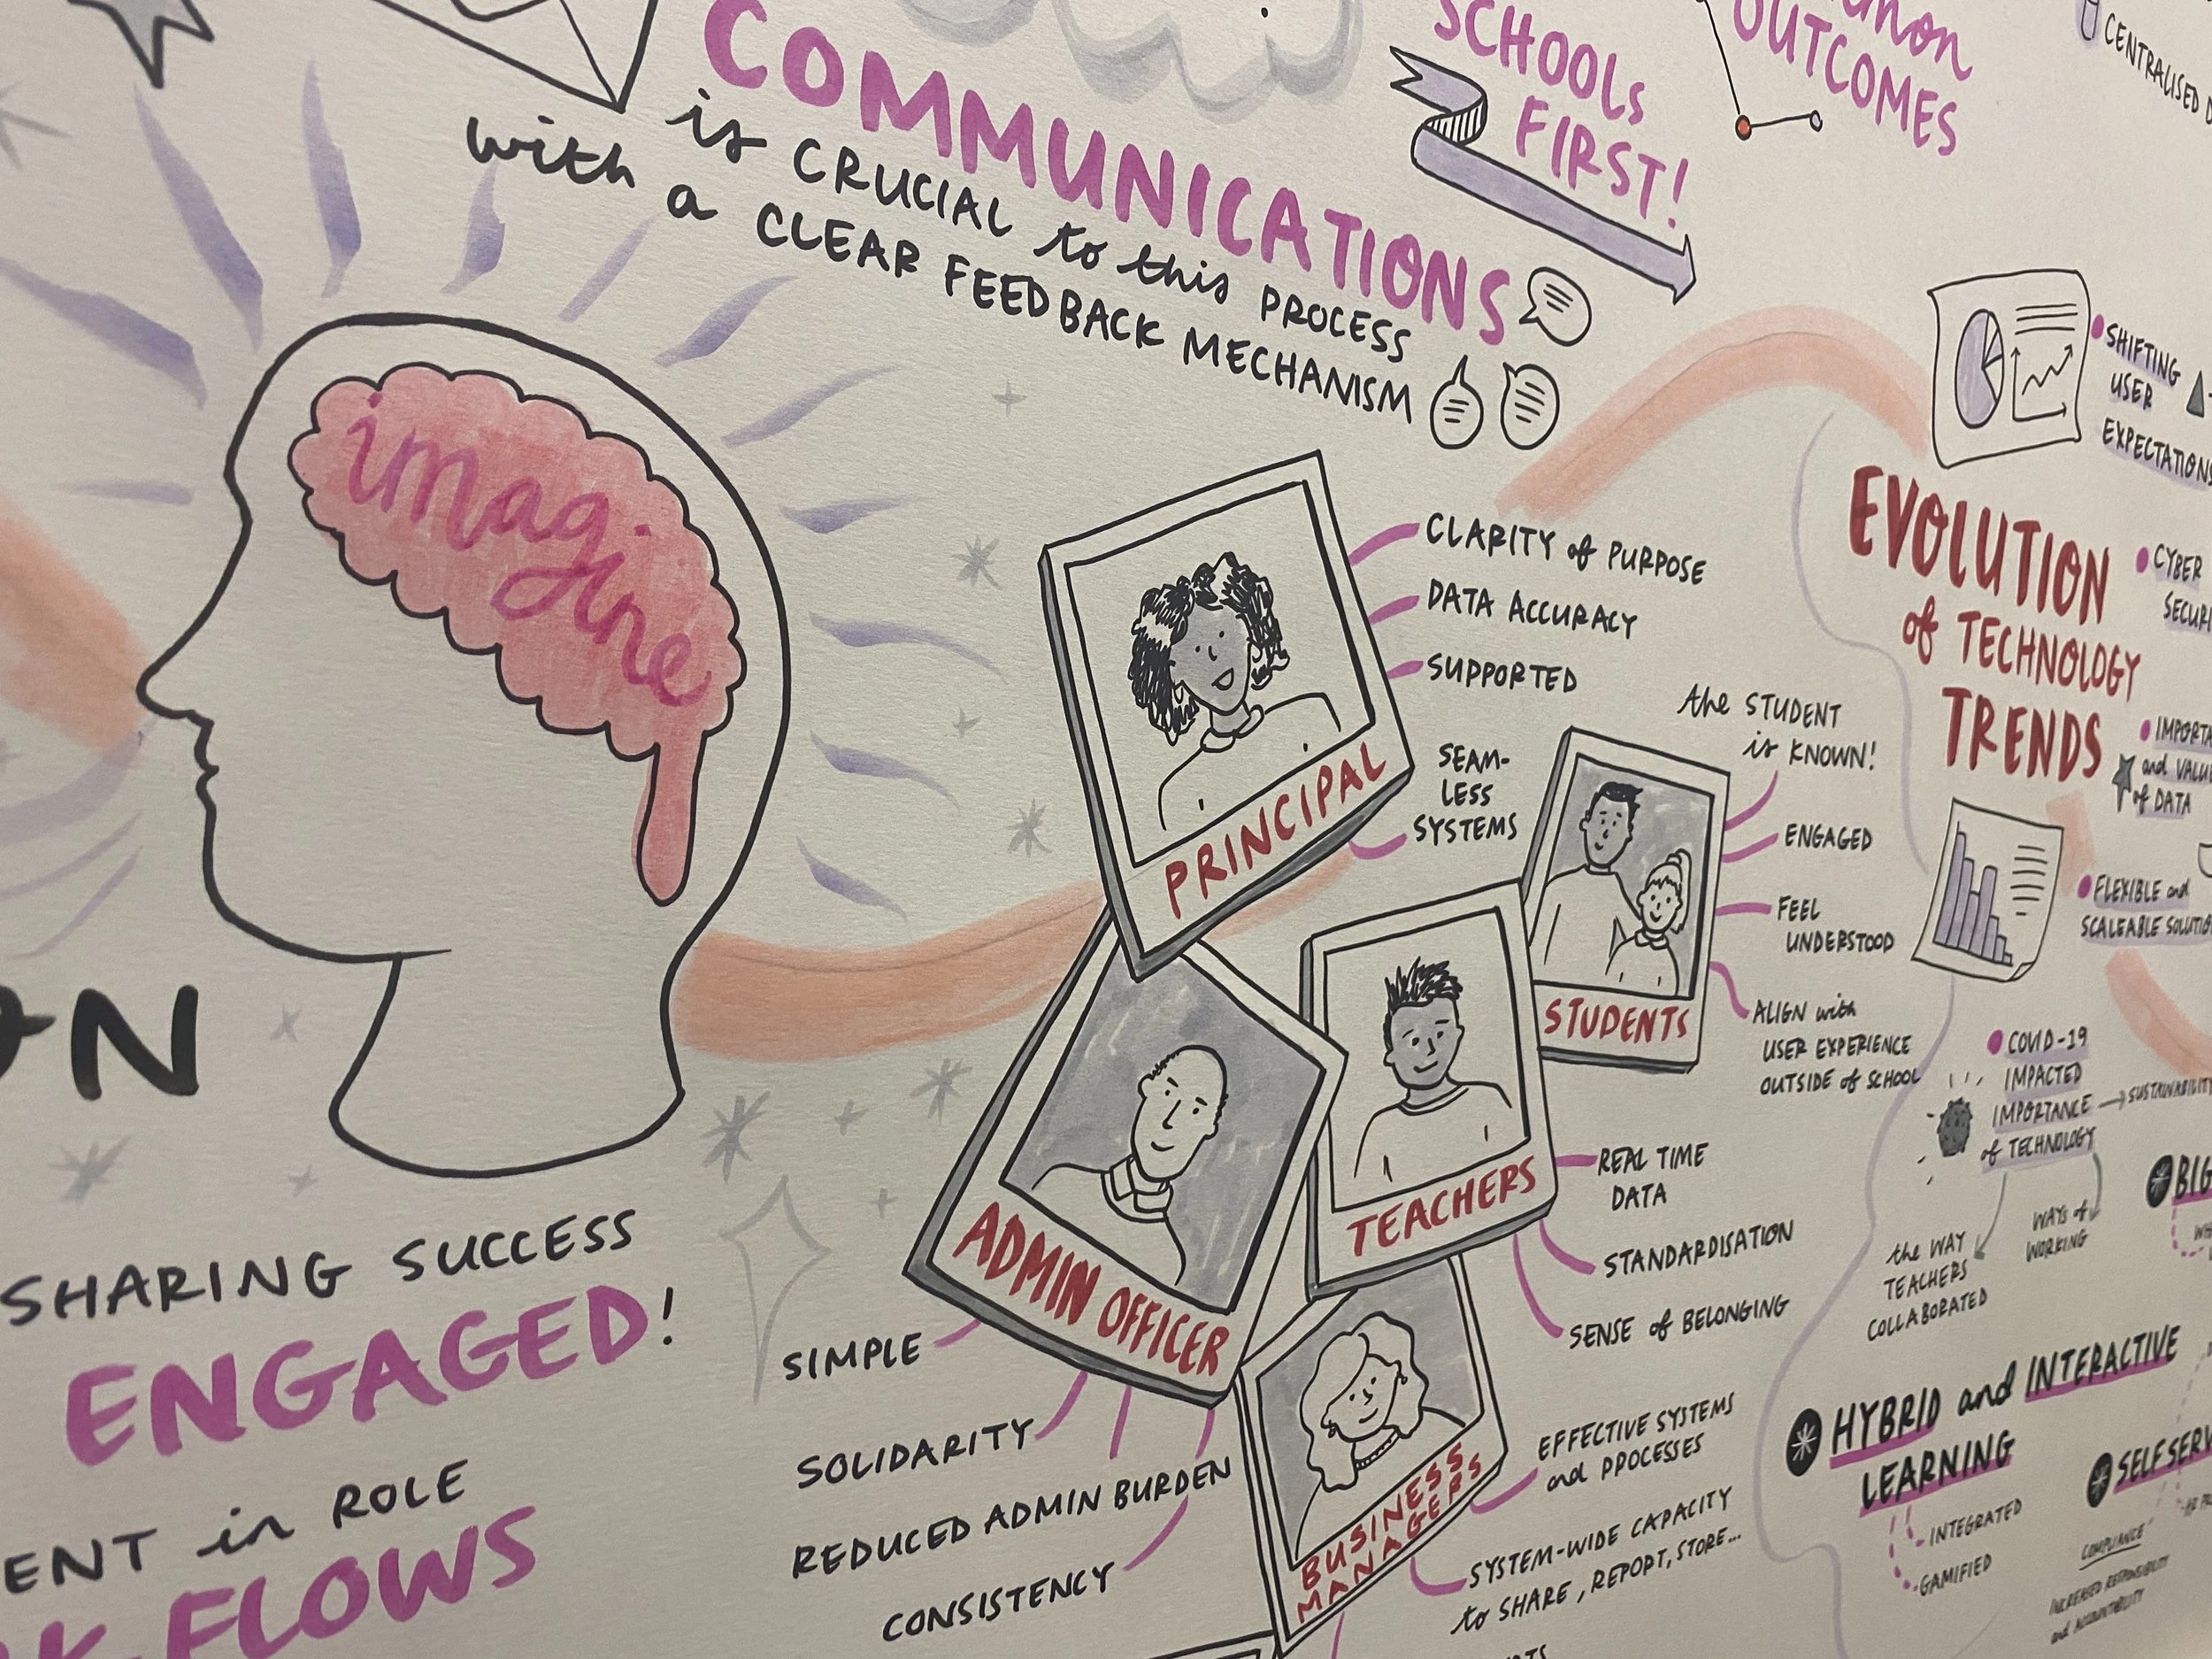 COMMUNICATIONS
is CRUCIAL to this PROCESS
with a CLEAR FEEDBACK MECHANISM
SCHOOLS
FIRST!
OUTCOMES
CENTRALISED
imagine
SHARING SUCCESS
ENGAGED!
in ROLE
FLOWS
PRINCIPAL
CLARITY of PURPOSE
DATA ACCURACY
SUPPORTED
SEAM-
LESS
SYSTEMS
STUDENTS
the STUDENT
is KNOWN!
ENGAGED
FEEL
UNDERSTOOD
ALIGN with
USER EXPERIENCE
OUTSIDE of SCHOOL
TEACHERS
REAL TIME
DATA
STANDARDISATION
SENSE of BELONGING
ADMIN OFFICER
SIMPLE
SOLIDARITY
REDUCED ADMIN BURDEN
CONSISTENCY
BUSINESS
MANAGERS
EFFECTIVE SYSTEMS
and PROCESSES
SYSTEM-WIDE CAPACITY
to SHARE, REPORT, STORE...
EVOLUTION
of TECHNOLOGY
TRENDS
SHIFTING
USER
EXPECTATIONS
CYBER
and
of DATA
FLEXIBLE and
SCALEABLE
COVID-19
IMPACTED
IMPORTANCE
of TECHNOLOGY
SUSTAINABILITY
the WAY
TEACHERS
COLLABORATED
WAYS of
WORKING
BIG
HYBRID and INTERACTIVE
LEARNING
INTEGRATED
GAMIFIED
SELF
COMPLIANCE
INCREASED RESPONSIBILITY
and ACCOUNTABILITY